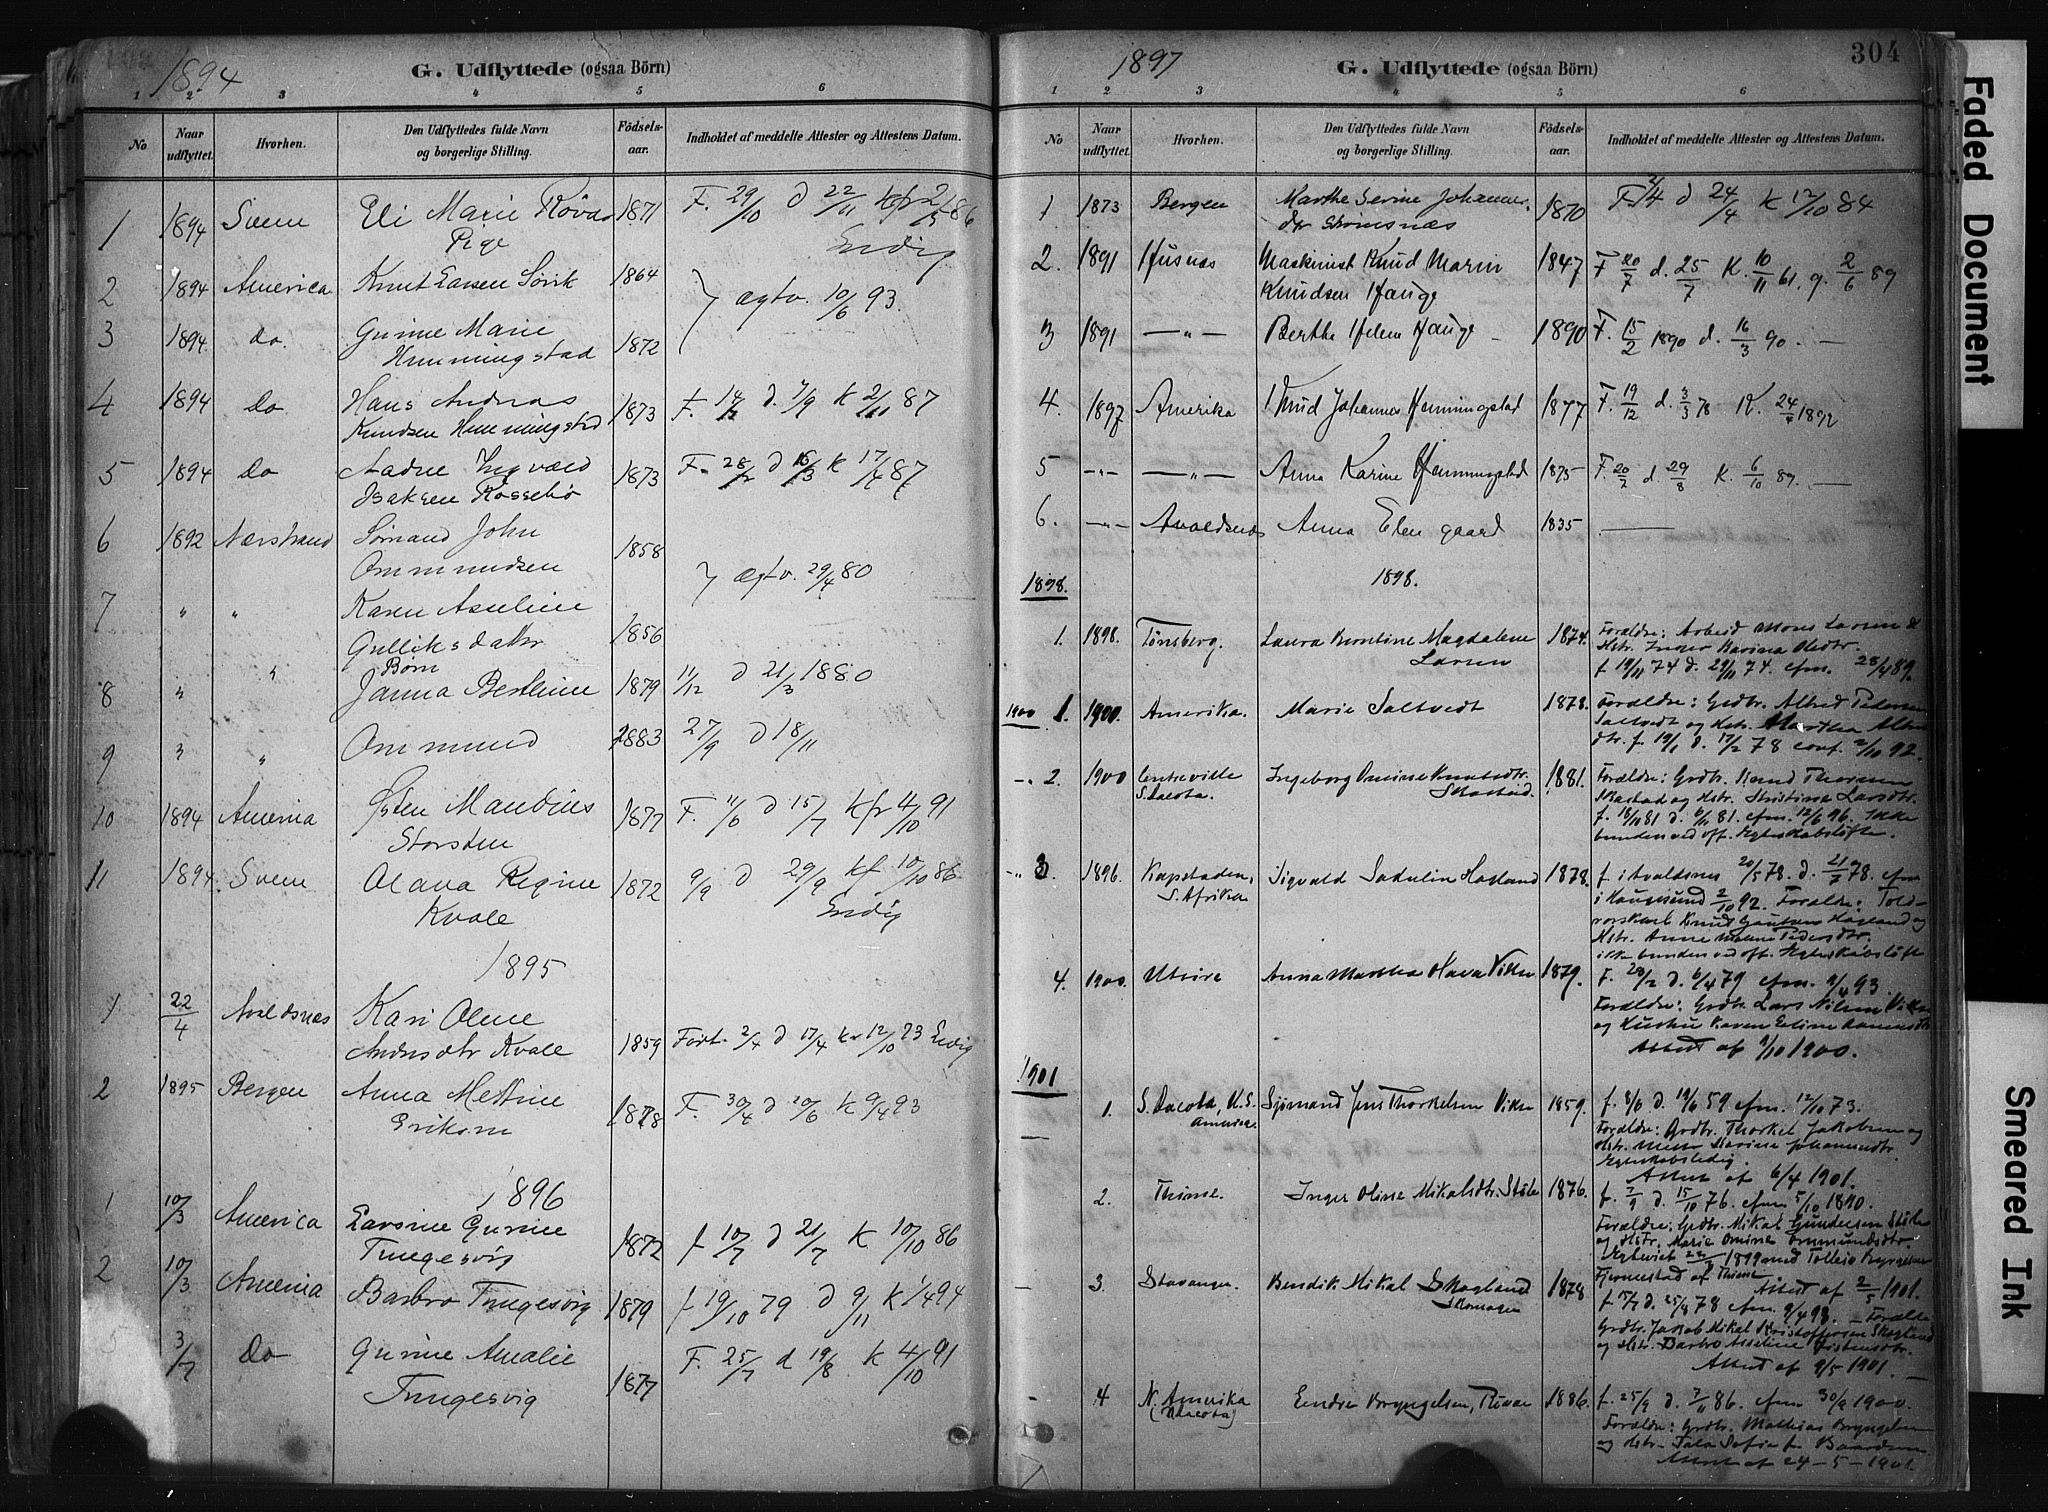 1894
G. Udflyttede (ogsaa Börn)
1 2 3 4 5 6
No Naar udflyttet. Hvorhen. Den Udflyttedes fulde Navn og borgerlige Stilling. Födsels-aar. Indholdet af meddelte Attester og Attestens Datum.
1 1894 Sveen Eli Marie 1871 F. 29/10 d 22/11
Pige Ledig
2 1894 America Knut Larsen 1864
ægtv. 10/6 93.
3 1894 Do. Gurine Marie
Hemmingstad 1872
4 1894 Do. Hans Andreas 1873 F. d. 7/9 K 2/10 87
Knudsen Hemmingstad
5 1894 Do Aadne Ingvald 1873 F. 28/2 d K 87
Isaksen Rossebø
6 1892 Nærstrand Sømand John 1858
Ommundsen
ægtv. 29/4 80
7 " " Karen Asseline
Gulliksdatter 1856
Børn
8 " " Janna Bertine 1879 11/12 d 21/3 1880
9 " " Ommund 1883 27/9 d 18/11
10 1894 America Østen Mandius 1877 F. 11/6 d 15/7 Kf 4/10 91
Storsten
11 1894 Sveen Olava Regine 1872 9/9 d 29/9 Kf 10/10 86
Kvale Ledig
1895
1 22/4 Avaldsnæs Kari Oline
Andersdtr Kvale 1859 Født 2/4 d 17/4 K 12/10 73 Ledig
2 1895 Bergen Anna Mettine 1878 F. 30/4 d 20/6 K 9/4 93
Eriksen
1896
1 10/3 America Larsine Gurine
Tungesvig 1872 f 10/7 d 21/7 K 10/10 86
2 10/3 America Barbro Tungesvig 1879 f 19/10 79 d 9/11 K 1/4 94
3/7 Do Gurine Amalie 1877 F. 25/7 d 19/8 K 4/10 91
Tungesvig
1897
G. Udflyttede (ogsaa Börn)
304
1 2 3 4 5 6
No Naar udflyttet. Hvorhen. Den Udflyttedes fulde Navn og borgerlige Stilling. Födsels-aar. Indholdet af meddelte Attester og Attestens Datum.
1 1873 Bergen Marthe Serine Johannes- 1870 F. d 24/4 K 12/10 84
dtr Strømsnæs
2. 1891 Husnæs Maskinist Knud Marin 1847 F 20/7 d. 25/7 K. 10/11 61. g. 2/6 89
Knudsen Hauge
3 1891 —"— Bertha Helene Hauge 1890 F. 15/2 1890 d. 16/3 90.
4. 1897 Amerika Knud Johannes Hemmingstad 1877 F. 19/12 d. 3/3 78 K. 1892
5 —"— —"— Anna Karine Hemmingstad 1875 F. 20/7 d. 29/8 K. 6/10 89.
6. —"— Avaldsnæs Anna Elen gaard 1835
1898. 1898.
1. 1898. Tønsberg. Laura Magdalene 1874. Forældre: Arbeid. Mons Larsen &
Larsen Hstr. Inger Karina
f 19/11 74 d. 29/11 74. cfm. 28/4 89.
1900 1. 1900. Amerika. Marie Saltvedt 1878. Forældre: Grdbr. Alfred Pedersen
Saltvedt og Hstr. Martha
dtr. f. 19/1 d. 17/2 78 conf. 2/10 92.
–"– 2. 1900 Centreville Ingeborg Omine Knutsdtr. 1881. Forældre: Grdbr. Knud Thorsen
S. Dacota. Skastad. Skastad og Hstr. Kristina Larsdtr.
f. 18/10 81 d. 81. cfm. 96. Ikke
bunden ved off. Egteskabsløfte.
–"– 3. 1896. Kapstaden, Sigvald Hagland 1878. f. i Avaldsnes 20/5 78. d. 21/7 78. cfm.
S. Afrika i Haugesund 2/10 92. Forældre: Told-
Knud Hagland og
Hstr. Anne Malene Pedersdtr.
ikke bunden ved off. Egteskabsløfte
4. 1900. Utsire Anna Martha Viksen 1879. F. 28/2 d. 6/4 79 cfm. 9/4 93.
Forældre: Grdbr. Lars Nilsen Viksen
og Hustru Karen Eline
Attest af 9/10 1900.
1901
1. S. Dacota, U.S. Sjømand Jens Thorkelsen Viksen 1859. f. 8/6 d. 19/6 59 cfm. 12/10 73.
Amerika. Forældre: Grdbr. Thorkel Jakobsen og
Hstr. Karina Johannesdtr.
Egteskabsledig.
Attest af 6/4 1901.
2. Thime. Inger Oline Mikalsdtr. Støle 1876. f. 7/9 d. 15/10 76. cfm. 5/10 1890.
Forældre: Grdbr. Mikal Gundersen Støle
og Hstr. Marie Omine Ommundsdtr.
Egteviet 1899 med
af Thime Attest af 2/5 1901.
3. Stavanger. Bendik Mikal Skogland 1878 f d. 78 cfm. 9/4 93. Forældre
Skomager Grdbr. Jakob Mikal Kristoffersen Skogland
og Hstr. Barbro Asseline
Attest af 9/5 1901.
4 N. Amerika Endre Bryngelsen, 1886. f. 25/9 d. 7/11 86. cfm 30/9 1900.
Forældre: Grdbr. Mathias Bryngelsen
og Hstr.
Attest af 24-5-1901.
Faded Document
Smeared Ink